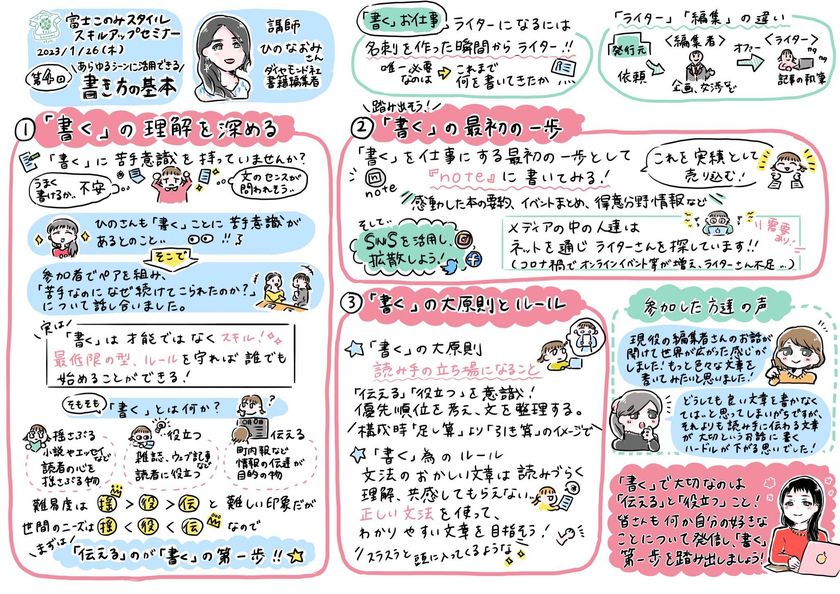 富士このみスタイル
スキルアップセミナー
2023/1/26(木)
第4回
あらゆるシーンに活用できる
書き方の基本
講師
ひのなおみさん
ダイヤモンド社
書籍編集者
「書く」お仕事
ライターになるには
名刺を作った瞬間からライター!!
唯一必要なのは
これまで
何を書いてきたか
「ライター」「編集」の違い
発行元
依頼
<編集者>
企画、交渉など
オファー
<ライター>
記事の執筆
①「書く」の理解を深める
「書く」に苦手意識を持っていませんか?
うまく書けるか..不安
文のセンスが
問われそう..
ひのさんも「書く」ことに苦手意識が
あるとのこと..!!
そこで
参加者でペアを組み、
「苦手なのになぜ続けてこられたのか?」
について話し合いました。
実は
「書く」は才能ではなくスキル!
最低限の型、ルールを守れば誰でも
始めることができる!
そもそも
「書く」とは何か?
揺さぶる
小説やエッセイなど
読者の心を
揺さぶる物
役立つ
雑誌、ウェブ記事など
読者に役立つ
伝える
町内報など
情報の伝達が
目的の物
難易度は 揺>役>伝 と難しい印象だが
世間のニーズは 揺<役<伝 なので
まずは
「伝える」のが「書く」の第一歩!!
踏み出そう!
②「書く」の最初の一歩
「書く」を仕事にする最初の一歩として
『note』に書いてみる!
note
これを実績として
売り込む!
感動した本の要約、イベントまとめ、得意分野情報など
そして..
SNSを活用し、
拡散しよう!
メディアの中の人達は
ネットを通じライターさんを探しています!!
(コロナ禍でオンラインイベント等が増え、ライターさん不足..)
需要あり!
③「書く」の大原則とルール
「書く」の大原則
読み手の立ち場になること
「伝える」「役立つ」を意識!
優先順位を考え、文を整理する。
構成時「足し算」より「引き算」のイメージで
「書く」為のルール
文法のおかしい文章は読みづらく
理解、共感してもらえない。
正しい文法を使って、
わかりやすい文章を目指そう!
スラスラと頭に入ってくるような
参加した方達の声
現役の編集者さんのお話が
聞けて世界が広がった感じが
しました!もっと色々な文章を
書いてみたいと思いました!
どうしても良い文章を書かなく
ては..と思ってしまいがちですが、
それよりも読み手に伝わる文章
が大切というお話に書く
ハードルが下がる思いでした!
「書く」で大切なのは
「伝える」と「役立つ」こと!
皆さんも何か自分の好きな
ことについて発信し、「書く」
第一歩を踏み出しましょう!